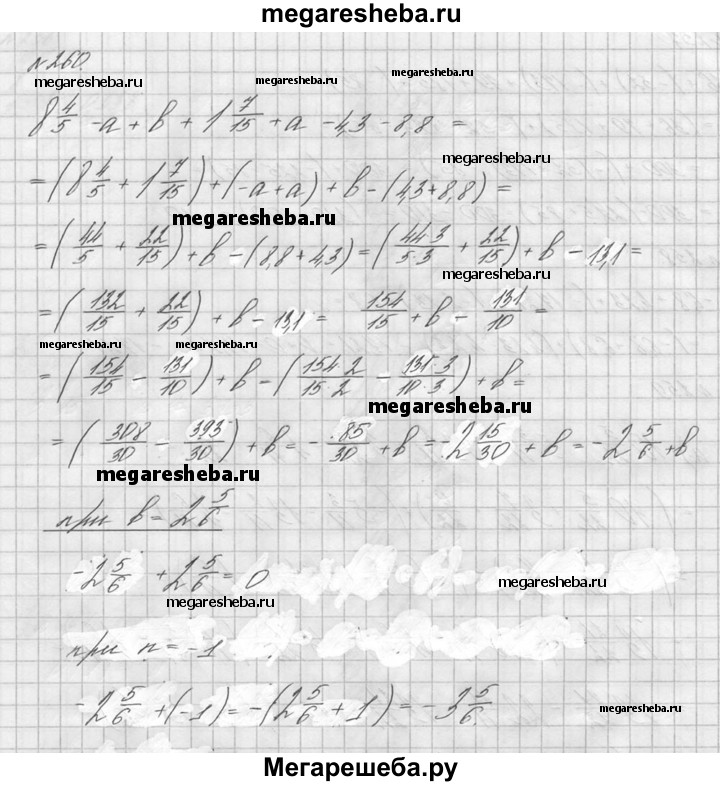 megaresheba.ru
№260.
megaresheba.ru megaresheba.ru megaresheba.ru
8 4/5 - a + b + 1 7/15 + a - 4,3 - 8,8 =
megaresheba.ru
= (8 4/5 + 1 7/15) + (-a + a) + b - (4,3 + 8,8) =
megaresheba.ru
= (44/5 + 22/15) + b - (8,8 + 4,3) = (44·3/5·3 + 22/15) + b - 13,1 =
megaresheba.ru
= (132/15 + 22/15) + b - 13,1 = 154/15 + b - 131/10 =
megaresheba.ru megaresheba.ru
= (154/15 - 131/10) + b = (154·2/15·2 - 131·3/10·3) + b =
megaresheba.ru
= (308/30 - 393/30) + b = - 85/30 + b = -2 15/30 + b = -2 5/6 + b
megaresheba.ru
при b = 2 5/6
-2 5/6 + 2 5/6 = 0
megaresheba.ru
megaresheba.ru
при n = -1
-2 5/6 + (-1) = -(2 5/6 + 1) = -3 5/6.
megaresheba.ru
Мегарешеба.ру